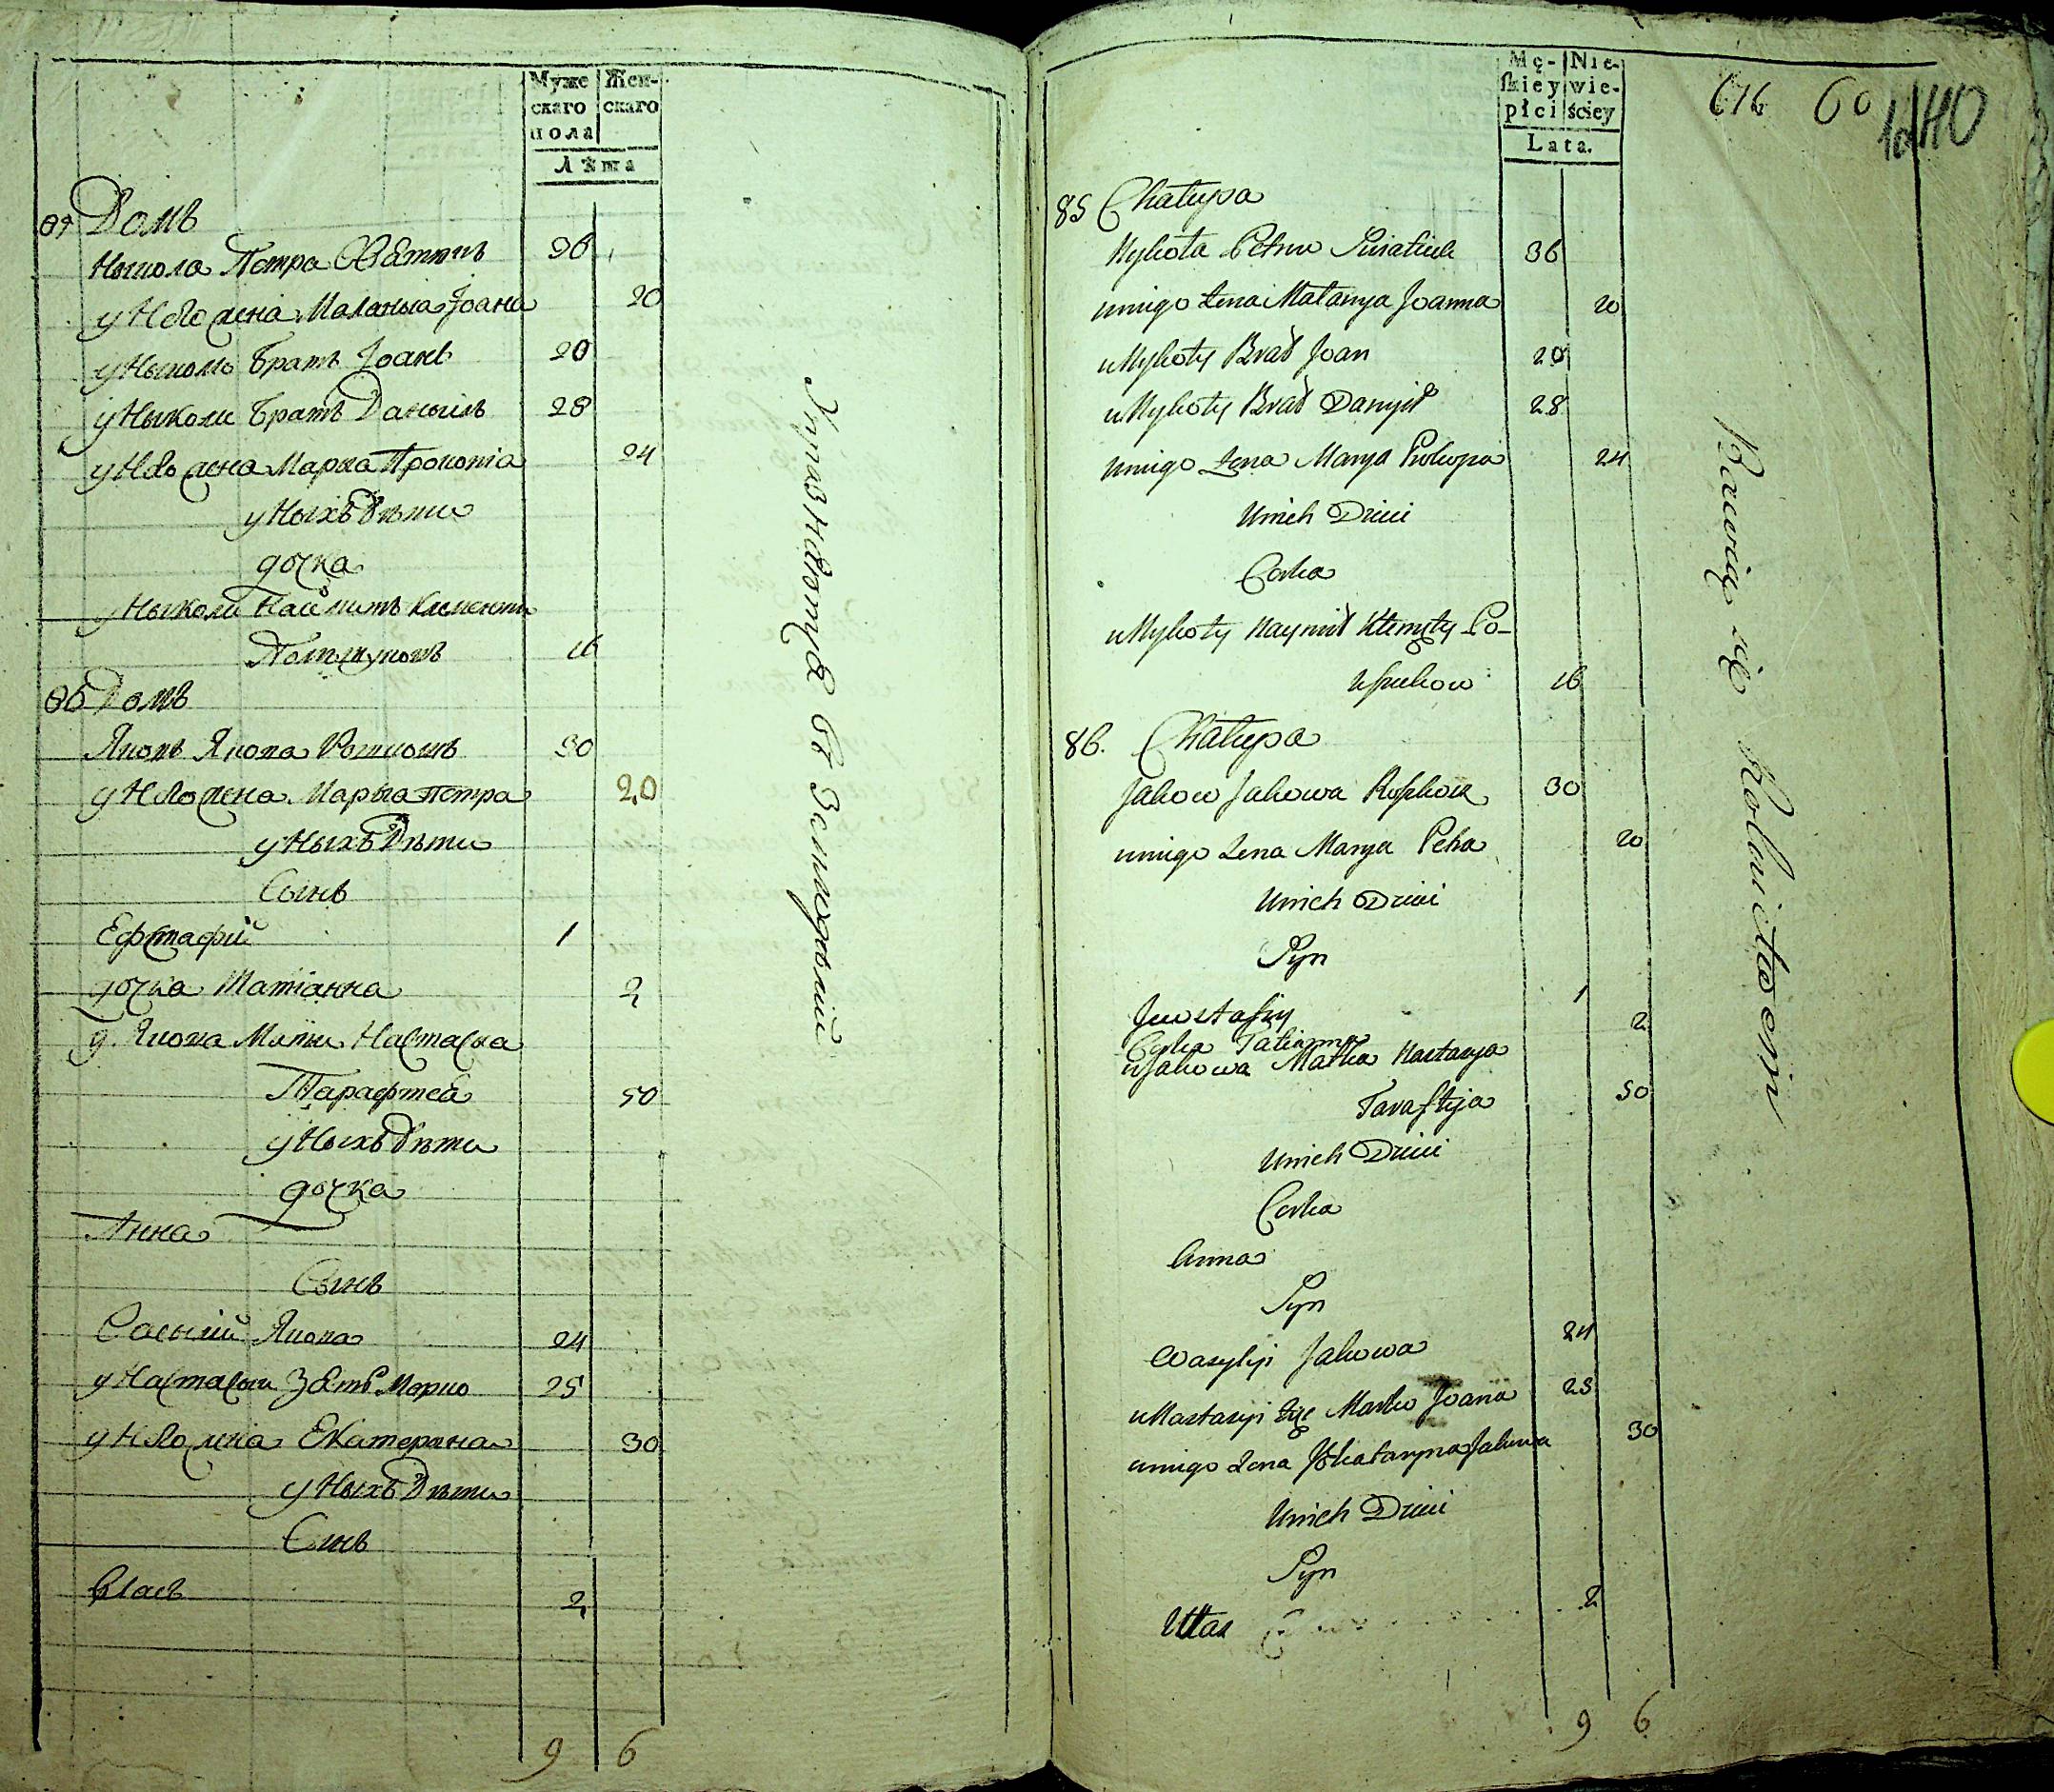 Муже Жен-
скаго скаго
пола
Лѣта
Домъ
Мыкола Петра 26
у Него жена Маланыа Јоана 20
у Мыколы братъ Јоанъ 20
у Мыколи братъ Даныилъ 28
у Него жена Марыа Прокопіа 24
у Ныхъ Дѣти
дочка
у Мыколи Наймитъ Клементи
16
86 Домъ
Яковъ Якова 30
у Него жена Марыа Петра 20
у Ныхъ Дѣти
Сынъ
Ефстафій 1
дочка Татіанна 2
у Якова Мати Настасыа
Тарафтеа 50
у Ныхъ Дѣти
дочка
Анна
Сынъ
Васылій Якова 24
у Настасыи Зять Марко 25
у Него жена Екатерина 30
у Ныхъ Дѣти
Синъ
Власъ 2
9 6
Упражнаютца въ Земледѣліи
Mę- Nie-
skiey wie-
płci ściey
Lata.
616 60
85 Chałupa
Mykoła Petra 36
uniego żena Małanya Joanna 20
u Mykoły Brat Joan 20
u Mykoły Brat Danyił 28
uniego żena Marya Prokopia 24
Unich Dzieci
Corka
u Mykoły Naymit Klemęty Po-
16
86. Chałupa
Jakow Jakowa 30
uniego żena Marya Petra 20
Unich Dzieci
Syn
Jewstafiy 1
Corka Tatianna 2
u Jakowa Matka Nastasya
Taraftija 50
Unich Dzieci
Corka
Anna
Syn
Wasylyi Jakowa 24
u Nastasyi Zięć Marko Joana 25
uniego żena Jekataryna Jakowa 30
Unich Dzieci
Syn
Ułas 2
9 6
Bawią się Rolnictwem